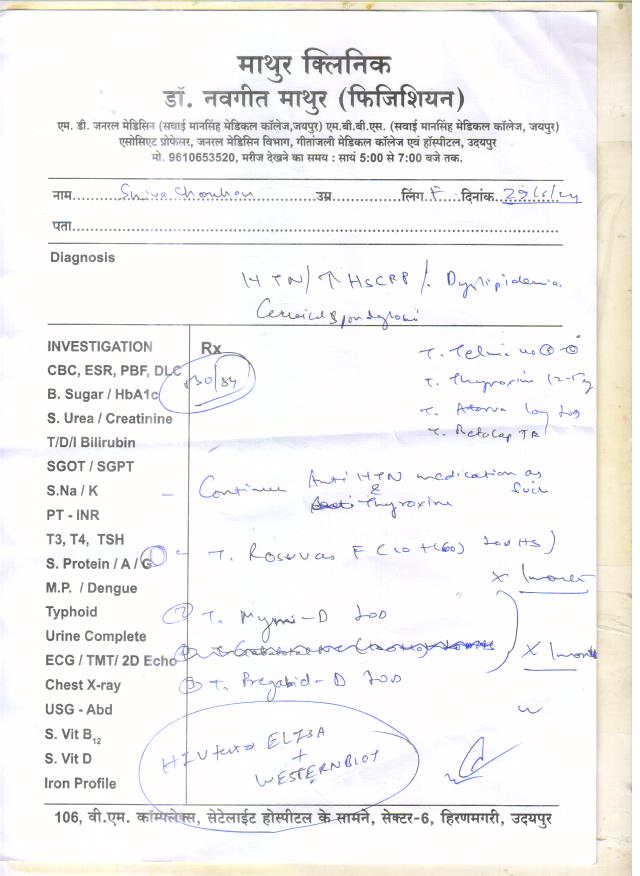 माथुर क्लिनिक
डॉ. नवगीत माथुर (फिजिशियन)
एम. डी. जनरल मेडिसिन (सवाई मानसिंह मेडिकल कॉलेज,जयपुर) एम.बी.बी.एस. (सवाई मानसिंह मेडिकल कॉलेज, जयपुर)
एसोसिएट प्रोफेसर, जनरल मेडिसिन विभाग, गीतांजली मेडिकल कॉलेज एवं हॉस्पीटल, उदयपुर
मो. 9610653520, मरीज देखने का समय : सायं 5:00 से 7:00 बजे तक.
नाम Shiva Chouhan उम्र लिंग F दिनांक
पता
Diagnosis
HTN / ↑ HsCRP / Dyslipidemia
Cervical Spondylosis
INVESTIGATION Rx
CBC, ESR, PBF, DLC
130/84
B. Sugar / HbA1c
S. Urea / Creatinine
T/D/I Bilirubin
SGOT / SGPT
S.Na / K
PT - INR
T3, T4, TSH
S. Protein / A / G
M.P. / Dengue
Typhoid
Urine Complete
ECG / TMT/ 2D Echo
Chest X-ray
USG - Abd
S. Vit B12
S. Vit D
Iron Profile
T. Telma
T. Thyroxine
T. Atorva
T.
- Continue Anti HTN medication as such
& Thyroxine
1 - T. Rosuvas F
2 T. D
3 T. Pregabid - D
HIV ELISA
+
WESTERN BLOT
106, वी.एम. कॉम्पलेक्स, सेटेलाईट होस्पीटल के सामने, सेक्टर-6, हिरणमगरी, उदयपुर